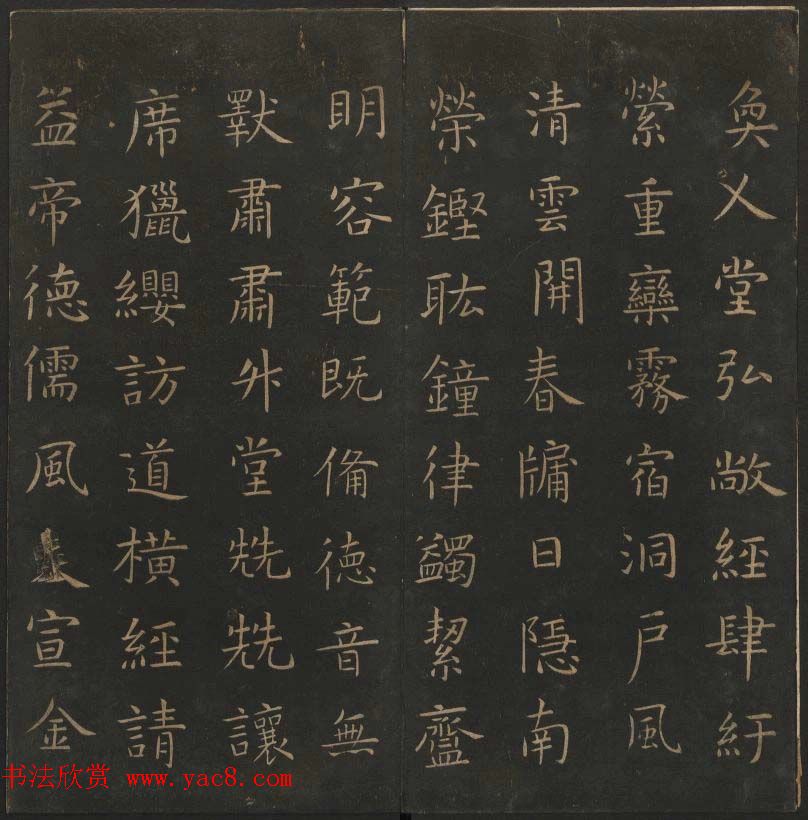 奐乂堂弘敞經肆紆
縈重欒霧宿洞戶風
清雲開春牖日隱南
榮鏗耾鐘律蠲絜齍
明容範既備德音無
斁肅肅升堂兟兟讓
席獵纓訪道橫經請
益帝德儒風宣金
书法欣赏 www.yac8.com